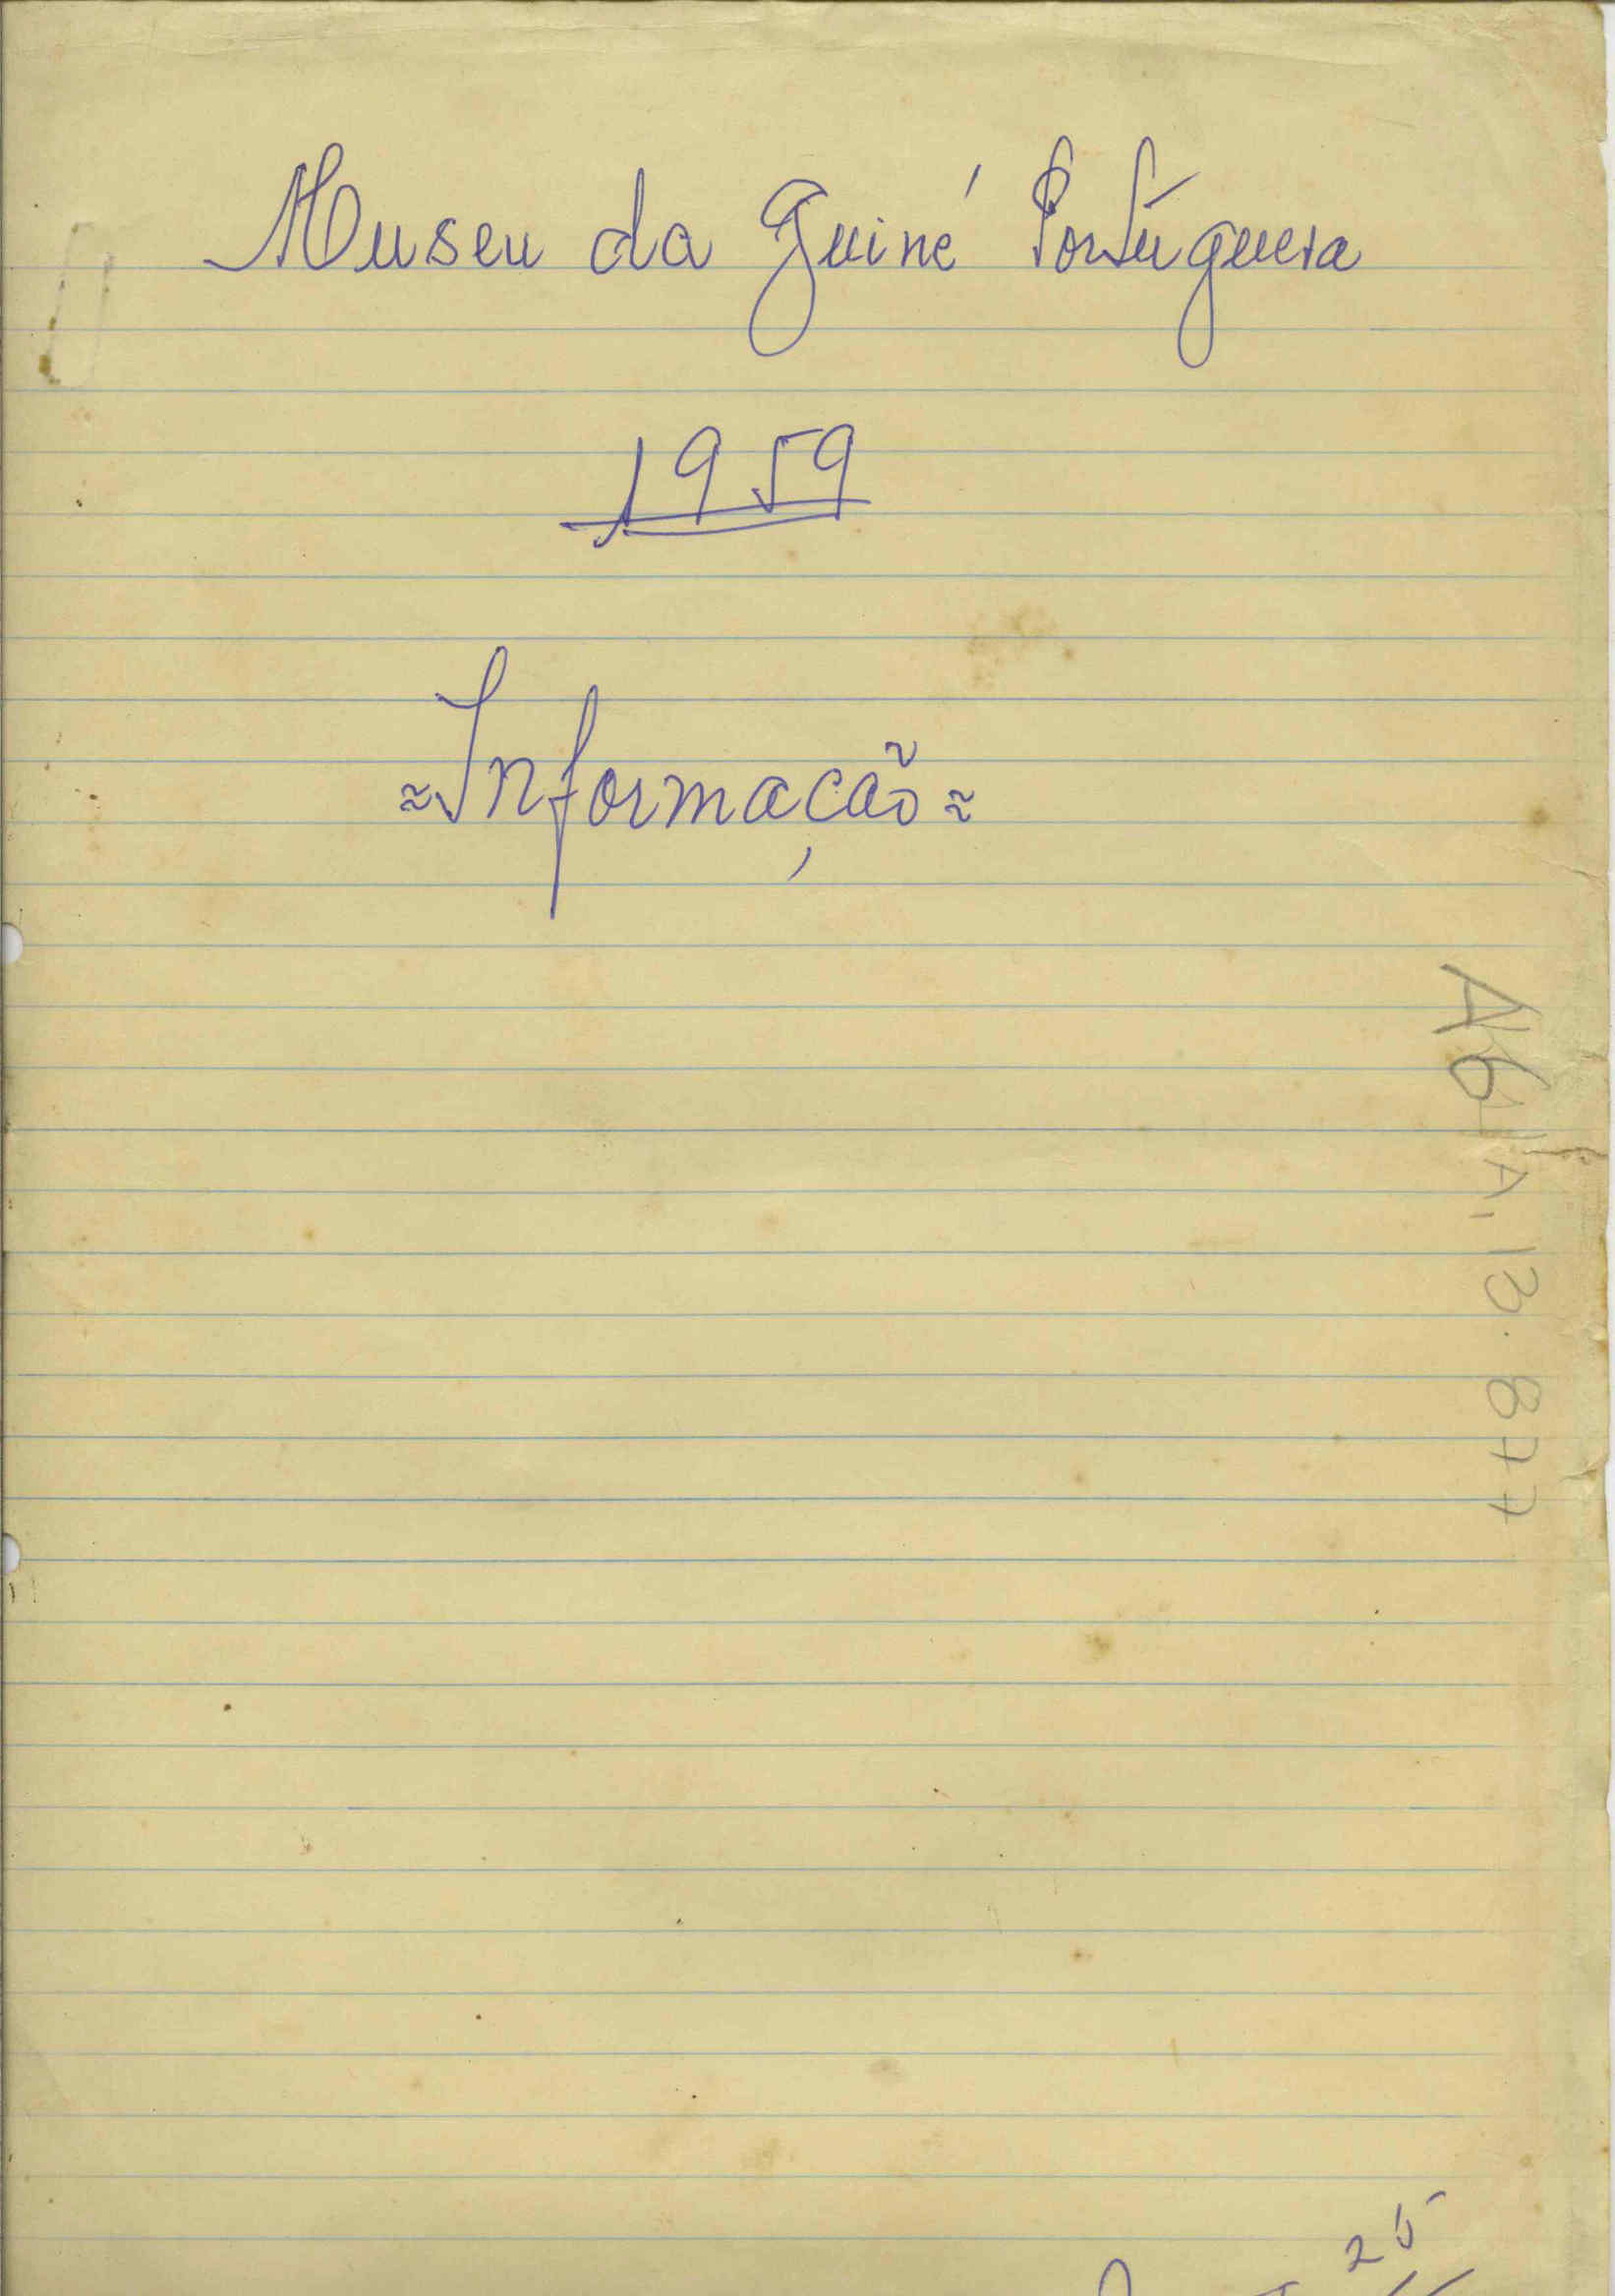 Museu da Guiné Portuguesa
1959
≈Informação≈
A6
A. 13. 877
25